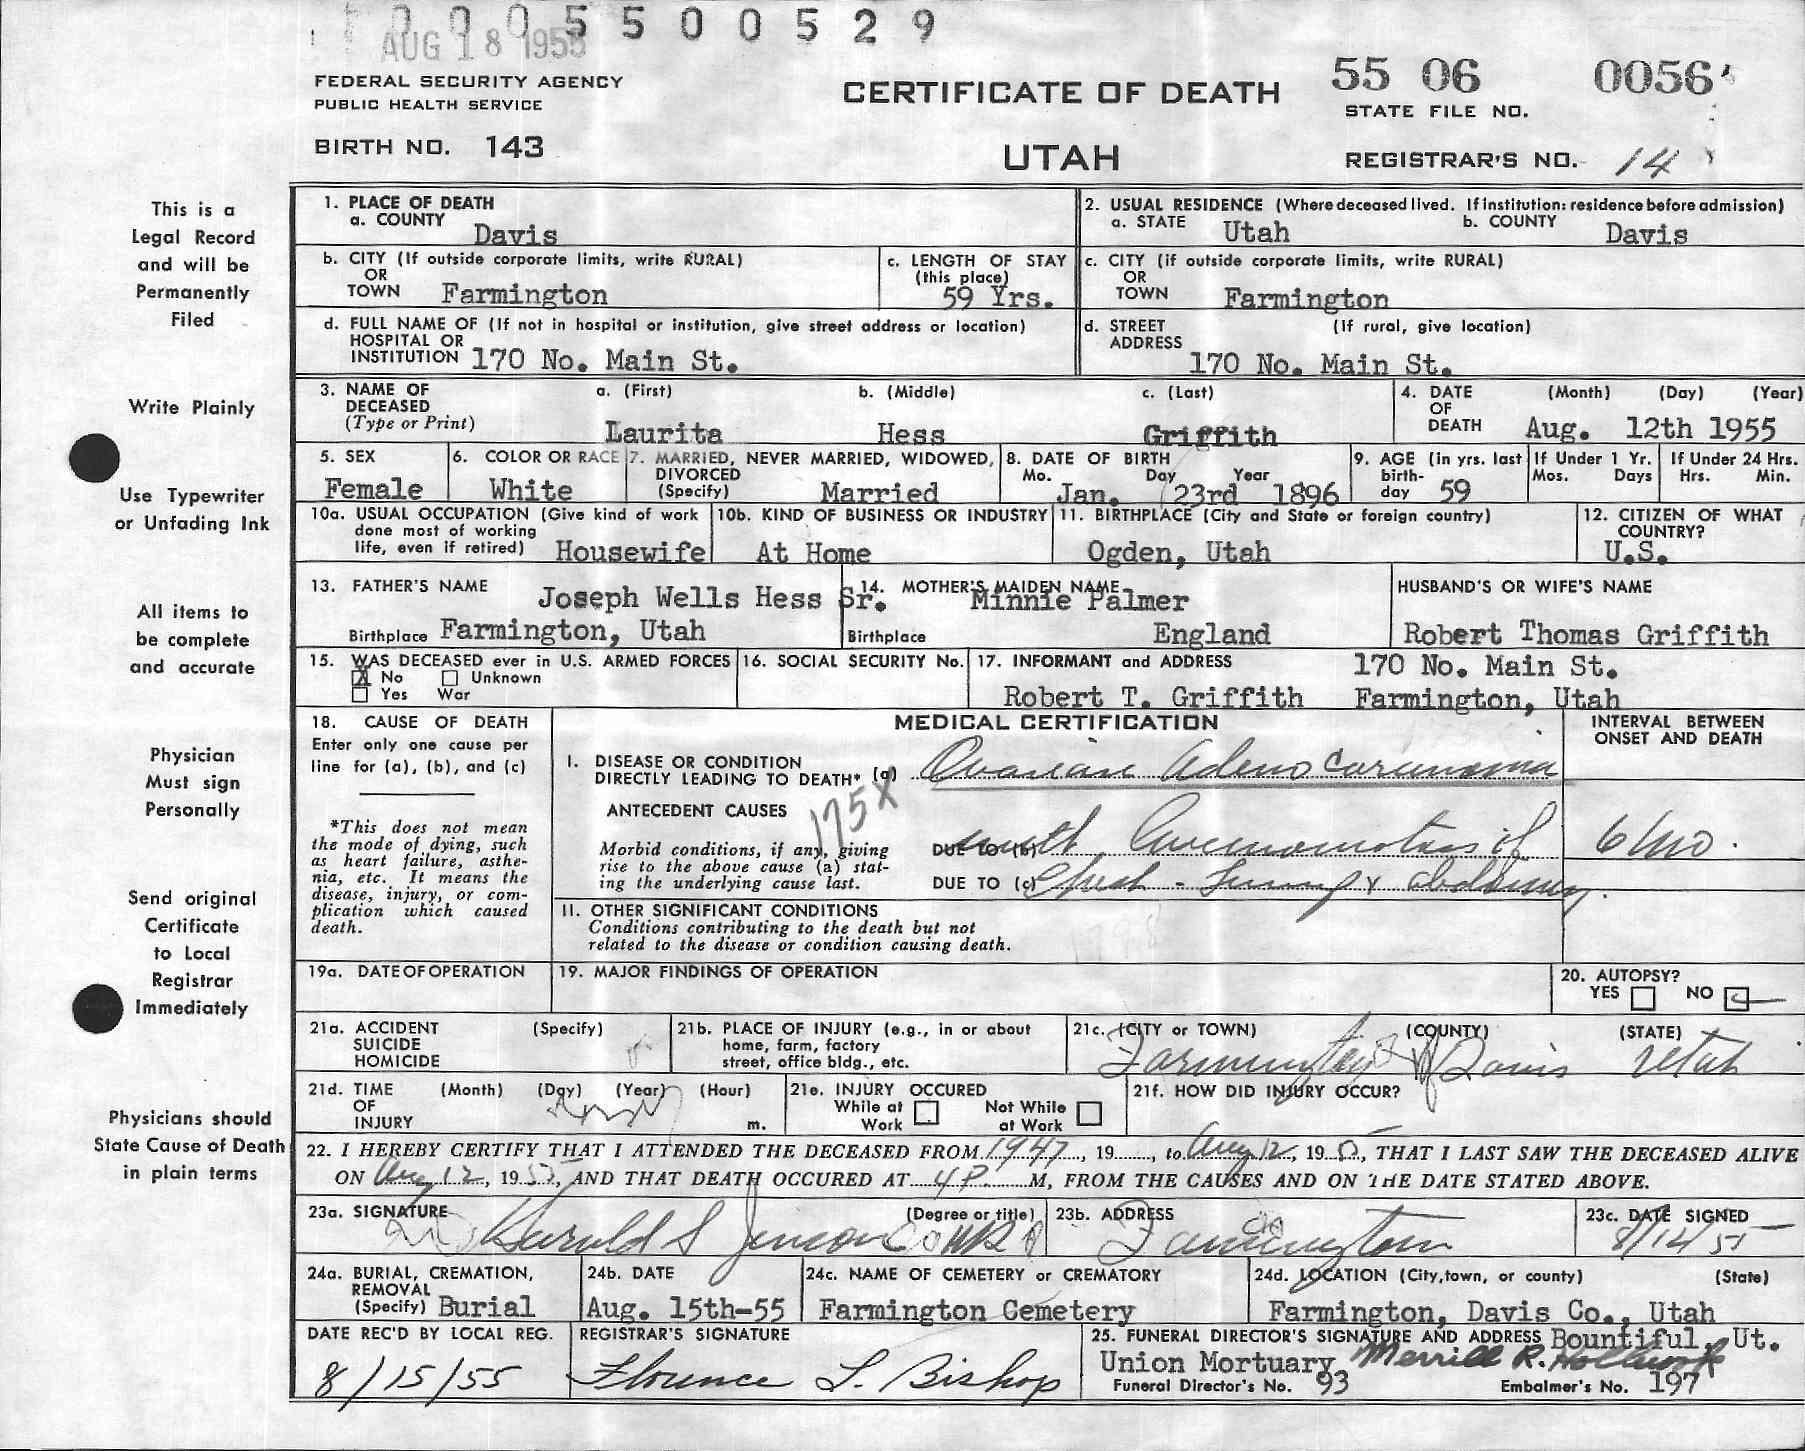 0 0 0 5 5 0 0 5 2 9
AUG 18 1955
FEDERAL SECURITY AGENCY
PUBLIC HEALTH SERVICE
BIRTH NO. 143
CERTIFICATE OF DEATH
UTAH
55 06 0056
STATE FILE NO.
REGISTRAR'S NO. 14
This is a
Legal Record
and will be
Permanently
Filed
Write Plainly
Use Typewriter
or Unfading Ink
All items to
be complete
and accurate
Physician
Must sign
Personally
Send original
Certificate
to Local
Registrar
Immediately
Physicians should
State Cause of Death
in plain terms
1. PLACE OF DEATH
a. COUNTY Davis
2. USUAL RESIDENCE (Where deceased lived. If institution: residence before admission)
a. STATE Utah b. COUNTY Davis
b. CITY (If outside corporate limits, write RURAL)
OR
TOWN Farmington
c. LENGTH OF STAY
(this place)
59 Yrs.
c. CITY (if outside corporate limits, write RURAL)
OR
TOWN Farmington
d. FULL NAME OF (If not in hospital or institution, give street address or location)
HOSPITAL OR
INSTITUTION 170 No. Main St.
d. STREET (If rural, give location)
ADDRESS
170 No. Main St.
3. NAME OF a. (First) b. (Middle) c. (Last)
DECEASED
(Type or Print) Laurita Hess Griffith
4. DATE (Month) (Day) (Year)
OF
DEATH Aug. 12th 1955
5. SEX
Female
6. COLOR OR RACE
White
7. MARRIED, NEVER MARRIED, WIDOWED,
DIVORCED
(Specify) Married
8. DATE OF BIRTH
Mo. Day Year
Jan. 23rd 1896
9. AGE (in yrs. last
birth-
day 59
If Under 1 Yr.
Mos. Days
If Under 24 Hrs.
Hrs. Min.
10a. USUAL OCCUPATION (Give kind of work
done most of working
life, even if retired) Housewife
10b. KIND OF BUSINESS OR INDUSTRY
At Home
11. BIRTHPLACE (City and State or foreign country)
Ogden, Utah
12. CITIZEN OF WHAT
COUNTRY?
U.S.
13. FATHER'S NAME Joseph Wells Hess Sr.
Birthplace Farmington, Utah
14. MOTHER'S MAIDEN NAME
Minnie Palmer
Birthplace England
HUSBAND'S OR WIFE'S NAME
Robert Thomas Griffith
15. WAS DECEASED ever in U.S. ARMED FORCES
X No Unknown
Yes War
16. SOCIAL SECURITY No.
17. INFORMANT and ADDRESS 170 No. Main St.
Robert T. Griffith Farmington, Utah
18. CAUSE OF DEATH
Enter only one cause per
line for (a), (b), and (c)
*This does not mean
the mode of dying, such
as heart failure, asthe-
nia, etc. It means the
disease, injury, or com-
plication which caused
death.
MEDICAL CERTIFICATION
INTERVAL BETWEEN
ONSET AND DEATH
I. DISEASE OR CONDITION
DIRECTLY LEADING TO DEATH* (a) Ovarian Adeno carcinoma
ANTECEDENT CAUSES 175X
Morbid conditions, if any, giving
rise to the above cause (a) stat-
ing the underlying cause last.
DUE TO (b) with Carcinomatosis of
6 mo.
DUE TO (c) Chest - Lung & abdomen.
II. OTHER SIGNIFICANT CONDITIONS
Conditions contributing to the death but not
related to the disease or condition causing death.
19a. DATE OF OPERATION
19. MAJOR FINDINGS OF OPERATION
20. AUTOPSY?
YES NO
21a. ACCIDENT (Specify)
SUICIDE
HOMICIDE
21b. PLACE OF INJURY (e.g., in or about
home, farm, factory
street, office bldg., etc.
21c. (CITY or TOWN) (COUNTY) (STATE)
Farmington Davis Utah
21d. TIME (Month) (Day) (Year) (Hour)
OF
INJURY m.
21e. INJURY OCCURED
While at Not While
Work at Work
21f. HOW DID INJURY OCCUR?
22. I HEREBY CERTIFY THAT I ATTENDED THE DECEASED FROM 1947, 19......, to Aug 12, 195, THAT I LAST SAW THE DECEASED ALIVE
ON Aug 12, 1955, AND THAT DEATH OCCURED AT 4 P. M, FROM THE CAUSES AND ON THE DATE STATED ABOVE.
23a. SIGNATURE (Degree or title)
Harold S Jenson
23b. ADDRESS
Farmington
23c. DATE SIGNED
8/12/55
24a. BURIAL, CREMATION,
REMOVAL
(Specify) Burial
24b. DATE
Aug. 15th-55
24c. NAME OF CEMETERY or CREMATORY
Farmington Cemetery
24d. LOCATION (City, town, or county) (State)
Farmington, Davis Co., Utah
DATE REC'D BY LOCAL REG.
8/15/55
REGISTRAR'S SIGNATURE
Florence L. Bishop
25. FUNERAL DIRECTOR'S SIGNATURE AND ADDRESS Bountiful, Ut.
Union Mortuary Merrill R. Holbrook
Funeral Director's No. 93 Embalmer's No. 197